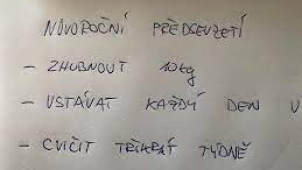 NOVOROČNÍ PŘEDSEVZETÍ
- ZHUBNOUT 10 kg
- VSTÁVAT KAŽDÝ DEN V
- CVIČIT TŘIKRÁT TÝDNĚ